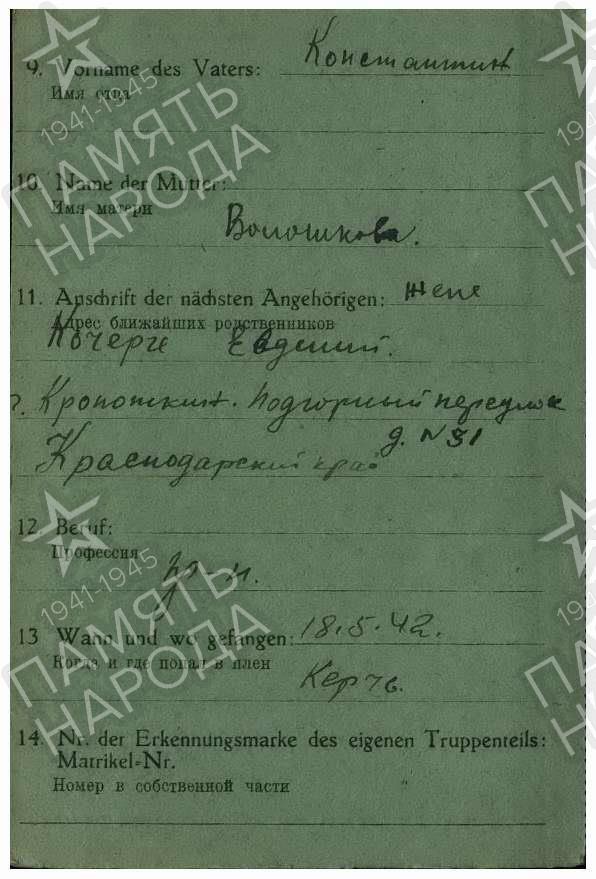 9. Vorname des Vaters: Константин
Имя отца
10. Name der Mutter:
Имя матери Волошкова.
11. Anschrift der nächsten Angehörigen: жене
Адрес ближайших родственников
Кочерге Евдений.
г. Кропоткин. Подгорный переулок
д. N 31
Краснодарский край
12. Beruf:
Профессия
13 Wann und wo gefangen: 18.5.42.
Когда и где попал в плен
Керчь.
14. Nr. der Erkennungsmarke des eigenen Truppenteils:
Matrikel-Nr.
Номер в собственной части
1941-1945
ПАМЯТЬ
НАРОДА
1941-1945
ПАМЯТЬ
НАРОДА